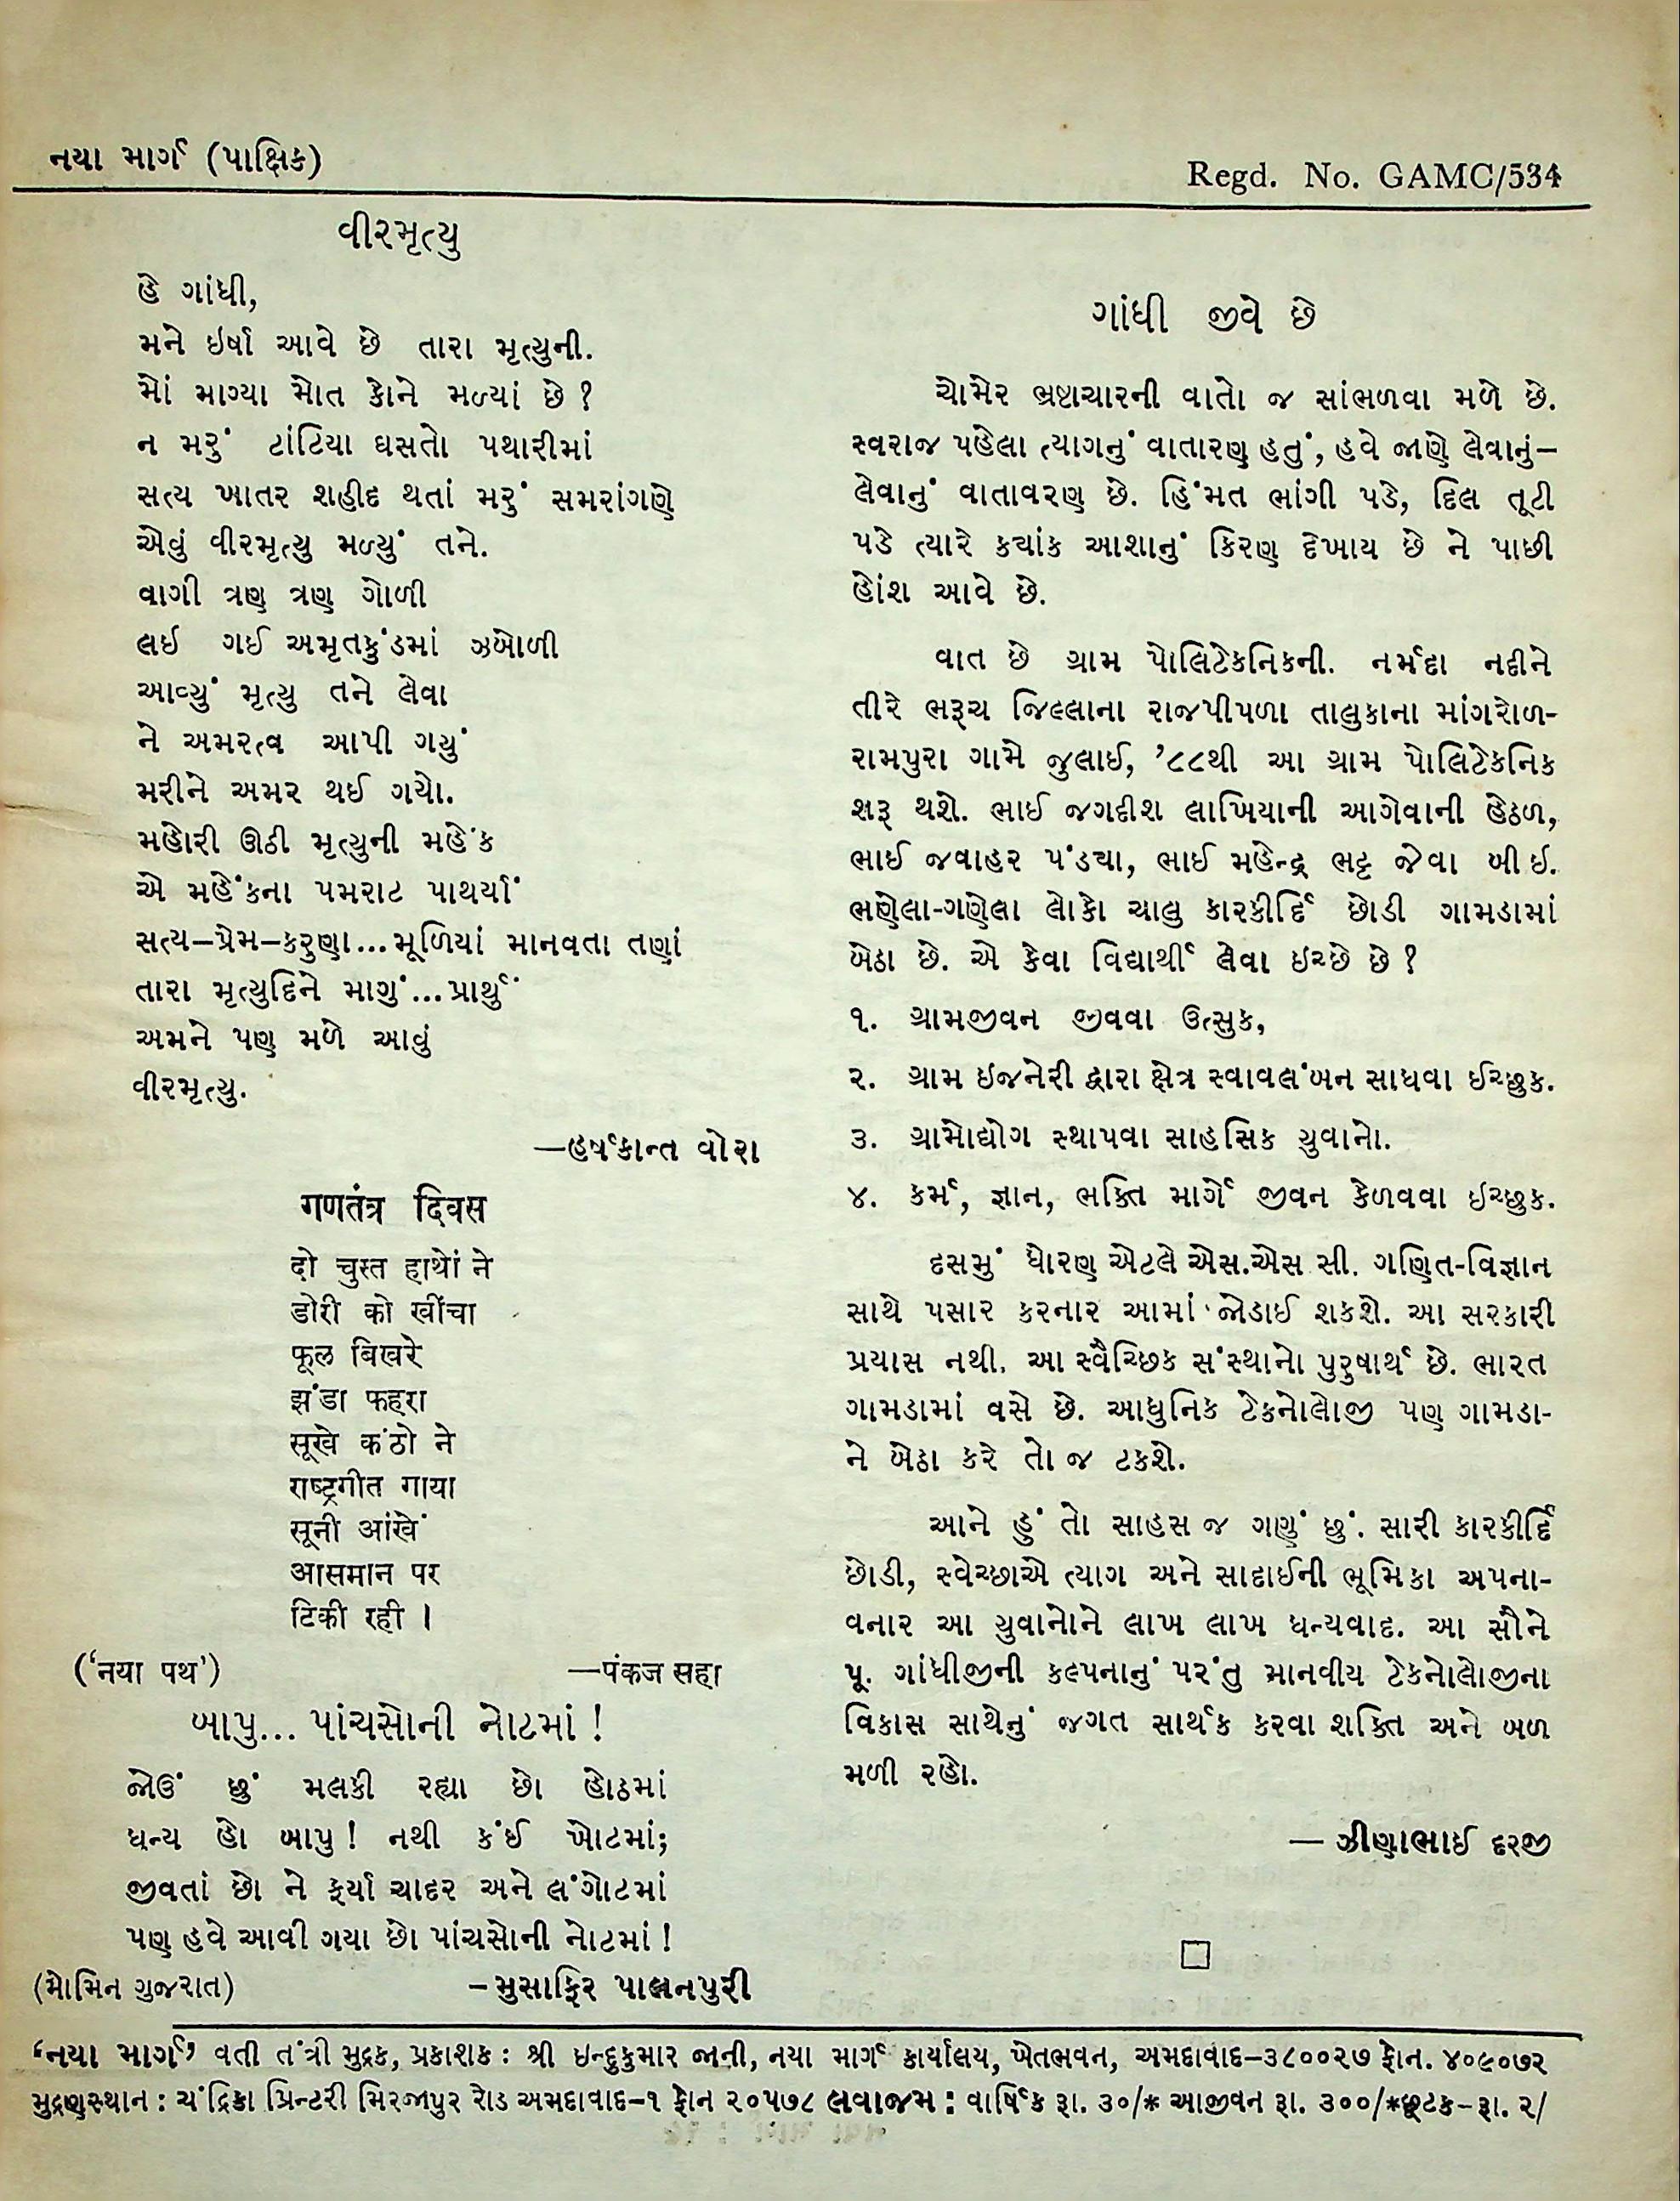 નયા માર્ગ (પાક્ષિક)
Regd. No. GAMC/534
વીરમૃત્યુ
હે ગાંધી,
મને ઇર્ષા આવે છે તારા મૃત્યુની.
મોં માગ્યા મોત કોને મળ્યાં છે ?
ન મરું ટાંટિયા ઘસતો પથારીમાં
સત્ય ખાતર શહીદ થતાં મરું સમરાંગણે
એવું વીરમૃત્યુ મળ્યું તને.
વાગી ત્રણ ત્રણ ગોળી
લઇ ગઈ અમૃતકુંડમાં ઝબોળી
આવ્યું મૃત્યુ તને લેવા
ને અમરત્વ આપી ગયું
મરીને અમર થઈ ગયો.
મહોરી ઊઠી મૃત્યુની મહેંક
એ મહેંકના પમરાટ પાથર્યાં
સત્ય–પ્રેમ–કરુણા...મૂળિયાં માનવતા તણાં
તારા મૃત્યુદિને માગું...પ્રાર્થું
અમને પણ મળે આવું
વીરમૃત્યુ.
—હર્ષકાન્ત વોરા
गणतंत्र दिवस
दो चुस्त हाथों ने
डोरी को खींचा
फूल बिखरे
झंडा फहरा
सूखे कंठो ने
राष्ट्रगीत गाया
सूनी आंखें
आसमान पर
टिकी रही ।
(‘नया पथ’)
—पंकज सहा
બાપુ... પાંચસોની નોટમાં !
જોઉં છું મલકી રહ્યા છો હોઠમાં
ધન્ય હો બાપુ ! નથી કંઈ ખોટમાં;
જીવતાં છો ને ફર્યા ચાદર અને લંગોટમાં
પણ હવે આવી ગયા છો પાંચસોની નોટમાં !
(મોમિન ગુજરાત)
–મુસાફિર પાલનપુરી
ગાંધી જીવે છે
ચોમેર ભ્રષ્ટાચારની વાતો જ સાંભળવા મળે છે.
સ્વરાજ પહેલા ત્યાગનું વાતારણ હતું, હવે જાણે લેવાનું–
લેવાનું વાતાવરણ છે. હિંમત ભાંગી પડે, દિલ તૂટી
પડે ત્યારે કયાંક આશાનું કિરણ દેખાય છે ને પાછી
હોંશ આવે છે.
વાત છે ગ્રામ પોલિટેકનિકની. નર્મદા નદીને
તીરે ભરૂચ જિલ્લાના રાજપીપળા તાલુકાના માંગરોળ-
રામપુરા ગામે જુલાઈ, ’૮૮થી આ ગ્રામ પોલિટેકનિક
શરૂ થશે. ભાઈ જગદીશ લાખિયાની આગેવાની હેઠળ,
ભાઈ જવાહર પંડયા, ભાઈ મહેન્દ્ર ભટ્ટ જેવા બી ઇ.
ભણેલા-ગણેલા લોકો ચાલુ કારકીર્દિ છોડી ગામડામાં
બેઠા છે. એ કેવા વિદ્યાર્થી લેવા ઇચ્છે છે ?
૧. ગ્રામજીવન જીવવા ઉત્સુક,
૨. ગ્રામ ઇજનેરી દ્વારા ક્ષેત્ર સ્વાવલંબન સાધવા ઈચ્છુક.
૩. ગ્રામોદ્યોગ સ્થાપવા સાહસિક યુવાનો.
૪. કર્મ, જ્ઞાન, ભક્તિ માર્ગે જીવન કેળવવા ઈચ્છુક.
દસમું ધોરણ એટલે એસ.એસ સી. ગણિત-વિજ્ઞાન
સાથે પસાર કરનાર આમાં જોડાઈ શકશે. આ સરકારી
પ્રયાસ નથી. આ સ્વૈચ્છિક સંસ્થાનો પુરુષાર્થ છે. ભારત
ગામડામાં વસે છે. આધુનિક ટેકનોલોજી પણ ગામડા-
ને બેઠા કરે તો જ ટકશે.
આને હું તો સાહસ જ ગણું છું. સારી કારકીર્દિ
છોડી, સ્વેચ્છાએ ત્યાગ અને સાદાઈની ભૂમિકા અપના-
વનાર આ યુવાનોને લાખ લાખ ધન્યવાદ. આ સૌને
પૂ. ગાંધીજીની કલ્પનાનું પરંતુ માનવીય ટેકનોલોજીના
વિકાસ સાથેનું જગત સાર્થક કરવા શક્તિ અને બળ
મળી રહો.
— ઝીણાભાઈ દરજી
‘નયા માર્ગ’ વતી તંત્રી મુદ્રક, પ્રકાશક : શ્રી ઇન્દુકુમાર જાની, નયા માર્ગ કાર્યાલય, ખેતભવન, અમદાવાદ–૩૮૦૦૨૭ ફોન. ૪૦૯૦૭૨
મુદ્રણસ્થાન : ચંદ્રિકા પ્રિન્ટરી મિરજાપુર રોડ અમદાવાદ–૧ ફોન ૨૦૫૭૮ લવાજમ : વાર્ષિક રૂા. ૩૦/* આજીવન રૂા. ૩૦૦/*છૂટક– રૂા. ૨/